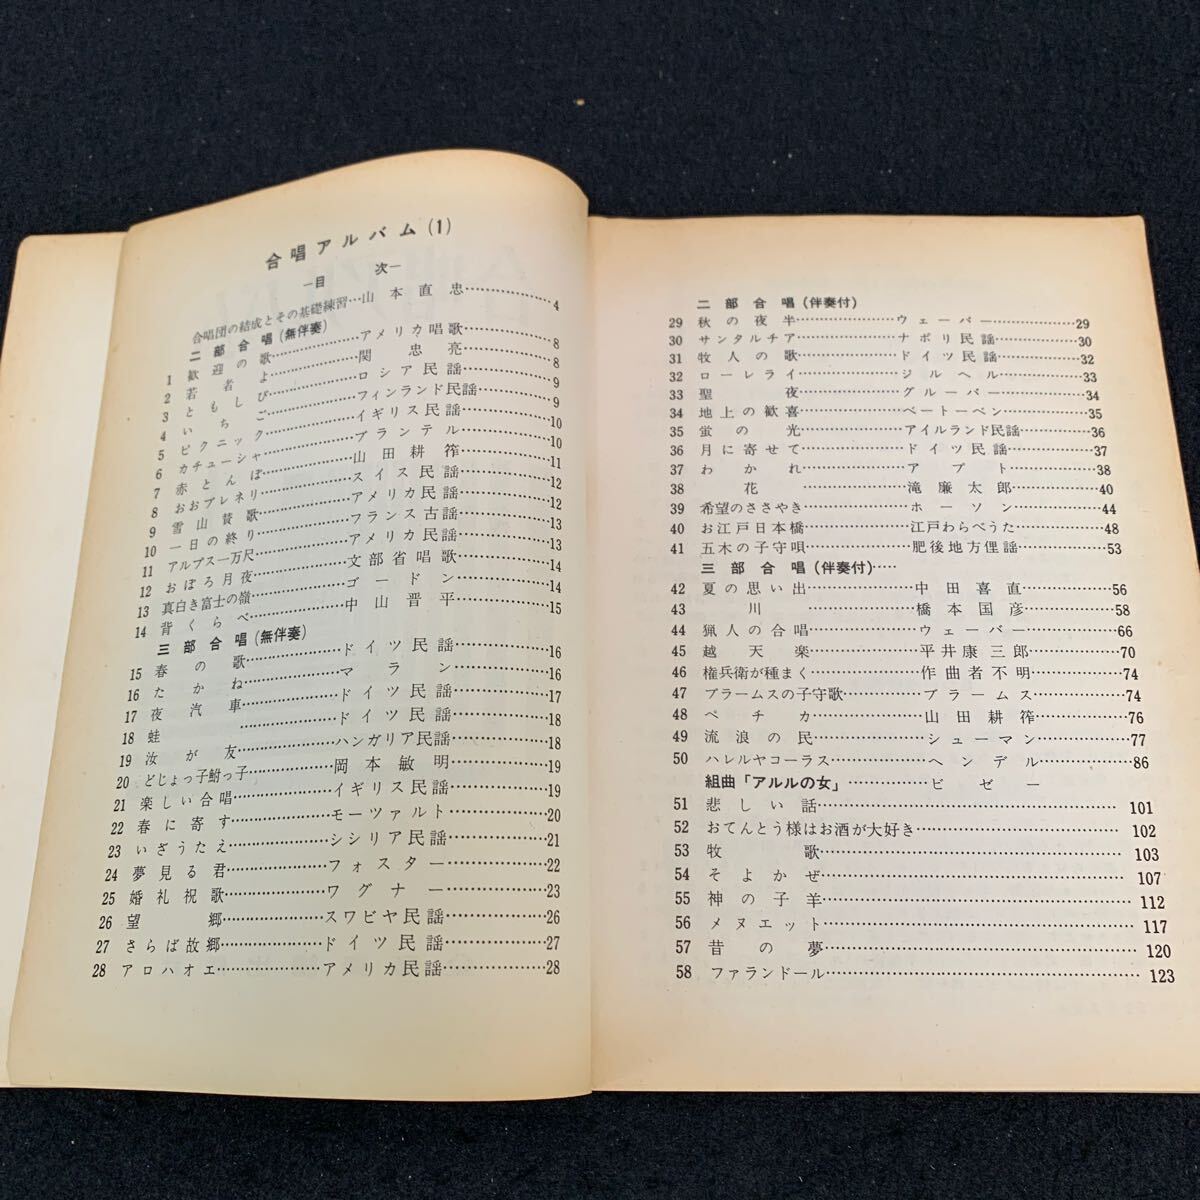 合唱アルバム(1)
―目　次―
合唱団の結成とその基礎練習…山本直忠……………4
二部合唱(無伴奏)
1 歓迎の歌……………アメリカ唱歌……………8
2 若者よ……………関忠亮……………8
3 ともしび……………ロシア民謡……………9
4 いちご……………フィンランド民謡……………9
5 ピクニック……………イギリス民謡……………10
6 カチューシャ……………ブランテル……………10
7 赤とんぼ……………山田耕筰……………11
8 おおブレネリ……………スイス民謡……………12
9 雪山賛歌……………アメリカ民謡……………12
10 一日の終り……………フランス古謡……………13
11 アルプス一万尺……………アメリカ民謡……………13
12 おぼろ月夜……………文部省唱歌……………14
13 真白き富士の嶺……………ゴードン……………14
14 背くらべ……………中山晋平……………15
三部合唱(無伴奏)
15 春の歌……………ドイツ民謡……………16
16 たかね……………マラン……………16
17 夜汽車……………ドイツ民謡……………17
18 蛙……………ドイツ民謡……………18
19 汝が友……………ハンガリア民謡……………18
20 どじょっ子鮒っ子……………岡本敏明……………19
21 楽しい合唱……………イギリス民謡……………19
22 春に寄す……………モーツァルト……………20
23 いざうたえ……………シシリア民謡……………21
24 夢見る君……………フォスター……………22
25 婚礼祝歌……………ワグナー……………23
26 望郷……………スワビヤ民謡……………26
27 さらば故郷……………ドイツ民謡……………27
28 アロハオエ……………アメリカ民謡……………28
二部合唱(伴奏付)
29 秋の夜半……………ウェーバー……………29
30 サンタルチア……………ナポリ民謡……………30
31 牧人の歌……………ドイツ民謡……………32
32 ローレライ……………ジルヘル……………33
33 聖夜……………グルーバー……………34
34 地上の歓喜……………ベートーベン……………35
35 蛍の光……………アイルランド民謡……………36
36 月に寄せて……………ドイツ民謡……………37
37 わかれ……………アプト……………38
38 花……………滝廉太郎……………40
39 希望のささやき……………ホーソン……………44
40 お江戸日本橋……………江戸わらべうた……………48
41 五木の子守唄……………肥後地方俚謡……………53
三部合唱(伴奏付)……
42 夏の思い出……………中田喜直……………56
43 川……………橋本国彦……………58
44 猟人の合唱……………ウェーバー……………66
45 越天楽……………平井康三郎……………70
46 権兵衛が種まく……………作曲者不明……………74
47 ブラームスの子守歌……………ブラームス……………74
48 ペチカ……………山田耕筰……………76
49 流浪の民……………シューマン……………77
50 ハレルヤコーラス……………ヘンデル……………86
組曲「アルルの女」……………ビゼー
51 悲しい話……………101
52 おてんとう様はお酒が大好き……………102
53 牧歌……………103
54 そよかぜ……………107
55 神の子羊……………112
56 メヌエット……………117
57 昔の夢……………120
58 ファランドール……………123